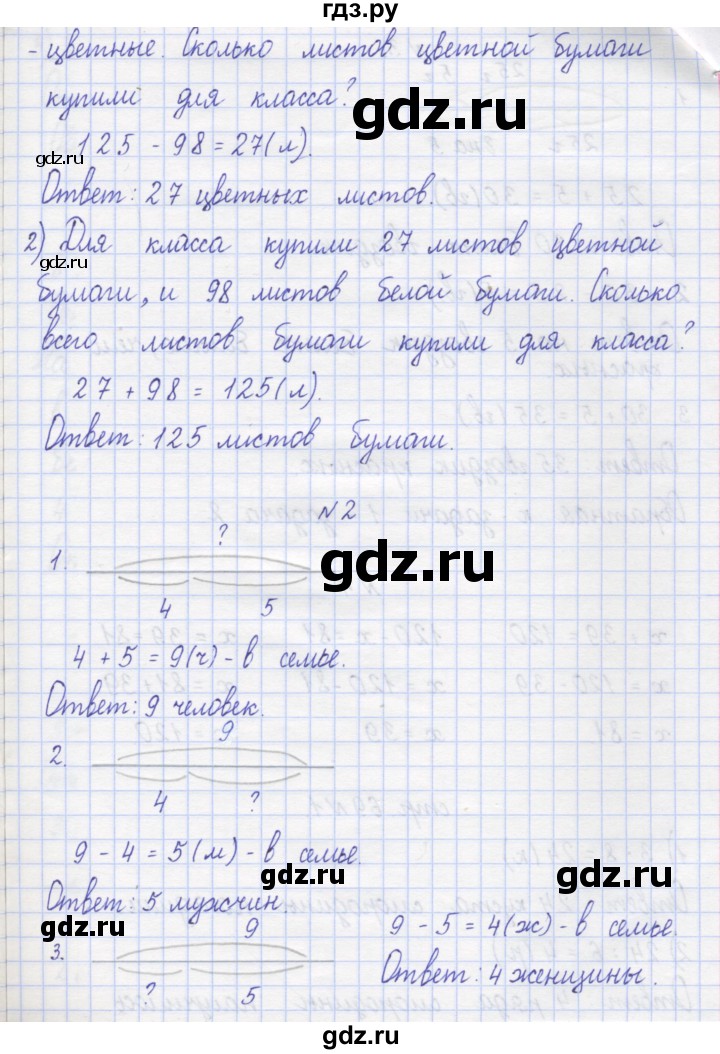 гдз.ру
- цветные. Сколько листов цветной бумаги
купили для класса?
gdz.ru
125 - 98 = 27(л).
gdz.ru
Ответ: 27 цветных листов.
2) Для класса купили 27 листов цветной
gdz.ru
бумаги, и 98 листов белой бумаги. Сколько
всего листов бумаги купили для класса?
27 + 98 = 125(л).
Ответ: 125 листов бумаги.
№2
?
1.
gdz.ru
4 5
4 + 5 = 9(ч) - в семье.
Ответ: 9 человек.
9
2.
4 ?
9 - 4 = 5(м) - в семье.
gdz.ru
gdz.ru
Ответ: 5 мужчин
gdz.ru
9
9 - 5 = 4(ж) - в семье.
3.
Ответ: 4 женщины.
? 5
gdz.ru